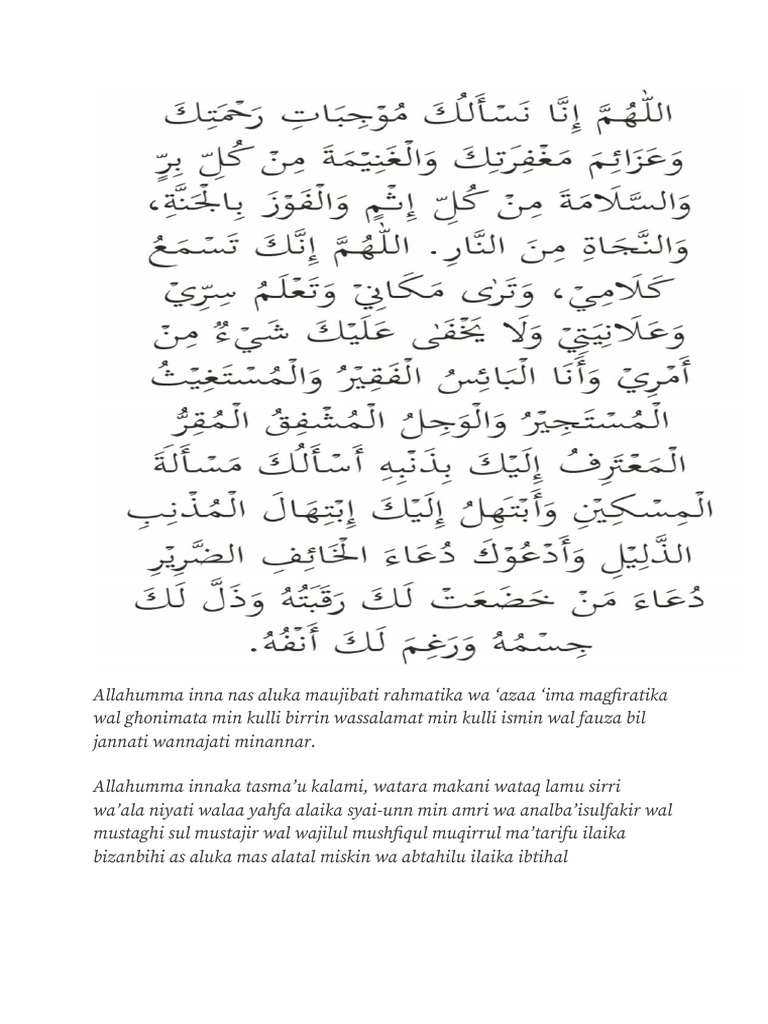 اللّٰهُمَّ إِنَّا نَسْأَلُكَ مُوْجِبَاتِ رَحْمَتِكَ
وَعَزَائِمَ مَغْفِرَتِكَ وَالْغَنِيْمَةَ مِنْ كُلِّ بِرٍّ
وَالسَّلَامَةَ مِنْ كُلِّ إِثْمٍ وَالْفَوْزَ بِالْجَنَّةِ،
وَالنَّجَاةِ مِنَ النَّارِ. اللّٰهُمَّ إِنَّكَ تَسْمَعُ
كَلَامِيْ، وَتَرٰى مَكَانِيْ وَتَعْلَمُ سِرِّيْ
وَعَلَانِيَتِيْ وَلَا يَخْفٰى عَلَيْكَ شَيْءٌ مِنْ
أَمْرِيْ وَأَنَا الْبَائِسُ الْفَقِيْرُ وَالْمُسْتَغِيْثُ
الْمُسْتَجِيْرُ وَالْوَجِلُ الْمُشْفِقُ الْمُقِرُّ
الْمَعْتَرِفُ إِلَيْكَ بِذَنْبِهِ أَسْأَلُكَ مَسْأَلَةَ
الْمِسْكِيْنِ وَأَبْتَهِلُ إِلَيْكَ إِبْتِهَالَ الْمُذْنِبِ
الذَّلِيْلِ وَأَدْعُوْكَ دُعَاءَ الْخَائِفِ الضَّرِيْرِ
دُعَاءَ مَنْ خَضَعَتْ لَكَ رَقَبَتُهُ وَذَلَّ لَكَ
جِسْمُهُ وَرَغِمَ لَكَ أَنْفُهُ.
Allahumma inna nas aluka maujibati rahmatika wa ‘azaa ‘ima magfiratika
wal ghonimata min kulli birrin wassalamat min kulli ismin wal fauza bil
jannati wannajati minannar.
Allahumma innaka tasma’u kalami, watara makani wataq lamu sirri
wa’ala niyati walaa yahfa alaika syai-unn min amri wa analba’isulfakir wal
mustaghi sul mustajir wal wajilul mushfiqul muqirrul ma’tarifu ilaika
bizanbihi as aluka mas alatal miskin wa abtahilu ilaika ibtihal